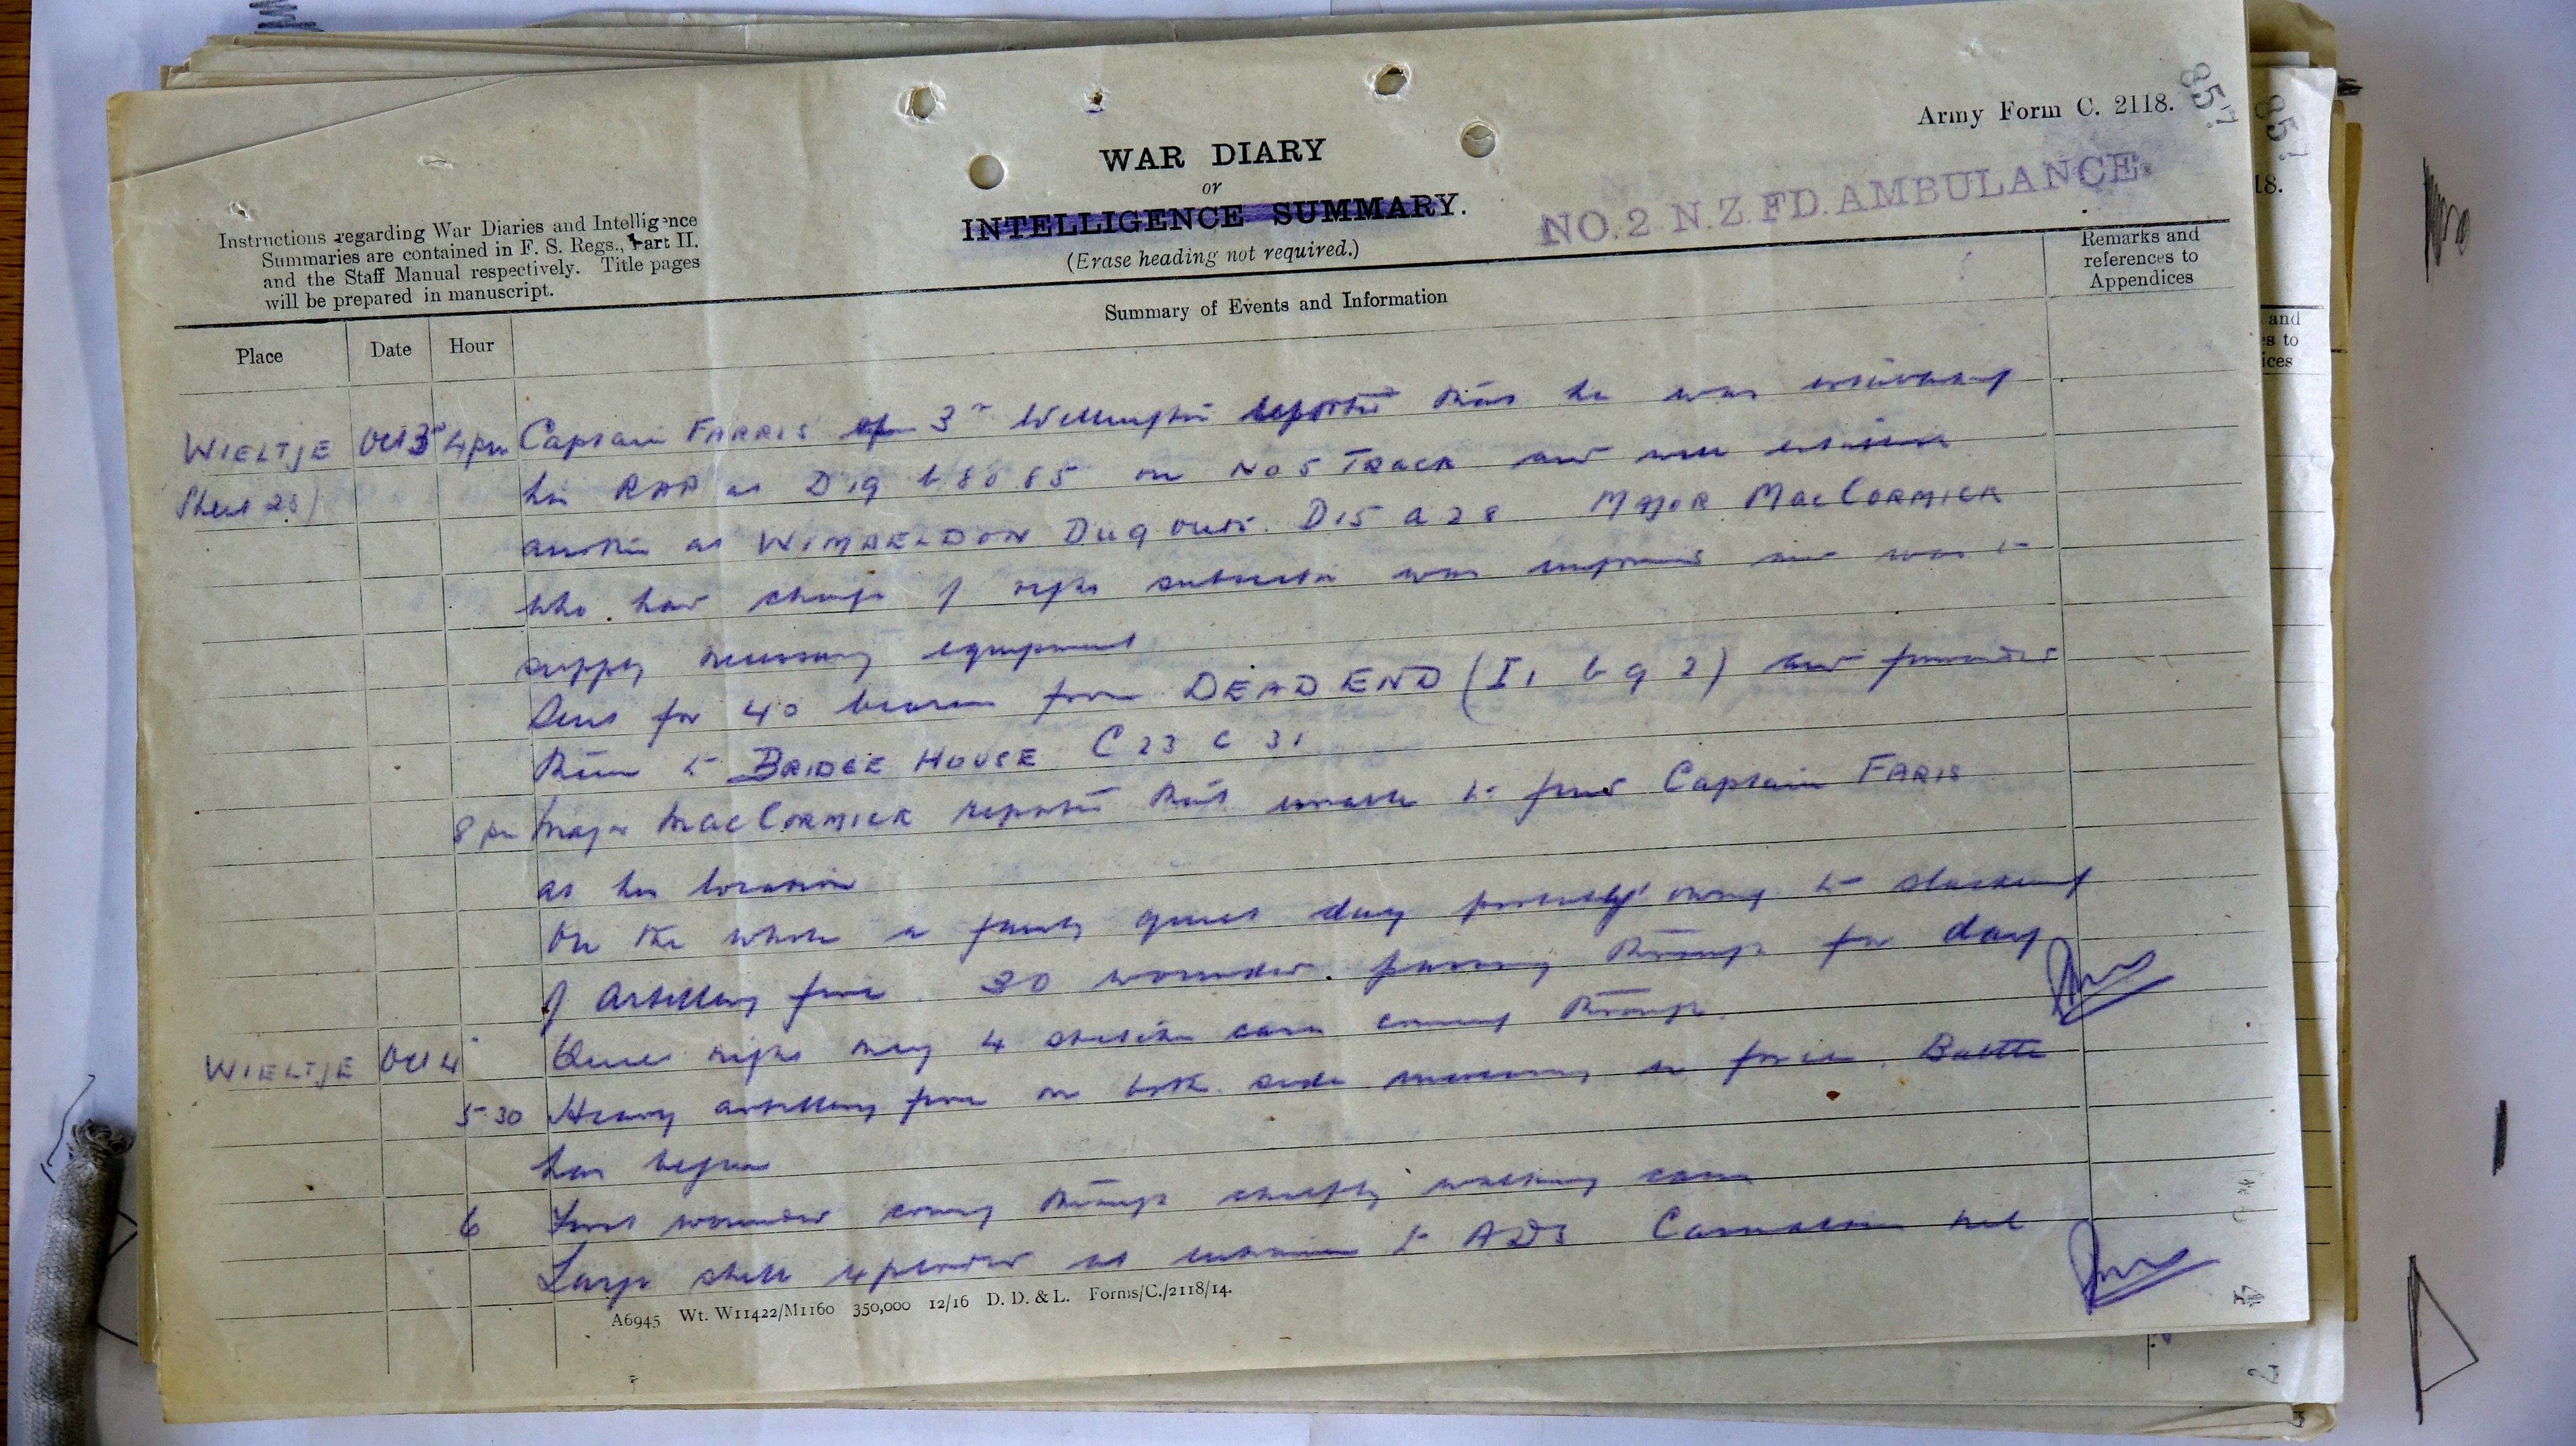 Army Form C. 2118.
857
WAR DIARY
or
INTELLIGENCE SUMMARY.
(Erase heading not required.)
NO. 2 N.Z. FD. AMBULANCE.
Instructions regarding War Diaries and Intelligence
Summaries are contained in F. S. Regs., Part II.
and the Staff Manual respectively. Title pages
will be prepared in manuscript.
Remarks and
references to
Appendices
Summary of Events and Information
Place Date Hour
WIELTJE Oct 3 4 pm Captain FARRIS of 3r Wellington reported that he was establishing
Sheet 28) his RAP at D 19 b 80 85 on No 5 TRACK and will establish
another at WIMBELDON Dug outs. D 15 a 2 8 MAJOR MacCORMICK
who had charge of right subsector was informed and was to
supply necessary equipment
Sent for 40 bearers from DEAD END (I 1 b 9 2) and forwarded
them to BRIDGE HOUSE C 23 C 31
8 pm Major MacCORMICK reported that unable to find Captain FARIS
at his location
On the whole a fairly quiet day probably owing to slackening
of artillery fire. 30 wounded passing through for day
WIELTJE Oct 4 Quiet night only 4 stretcher cases coming through.
5-30 Heavy artillery fire on both sides increasing in force. Battle
has begun
6 First wounded coming through chiefly walking cases
Large shell exploded at entrance to ADS Casualties nil
A6945 Wt. W11422/M1160 350,000 12/16 D. D. & L. Forms/C./2118/14.
85
18.
and
s to
ices